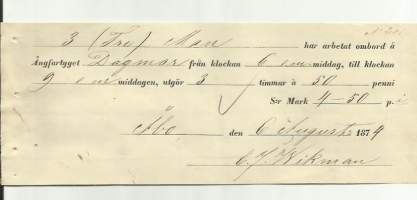 3 (Tre) Man har arbetat ombord å
Ångfartyget Dagmar från klockan 6 e.m. middag, till klockan
9 e m middagen, utgör 3 timmar à 50 penni
S:r Mark 4-50 p.i
Åbo den 6 Augusti 1874
C. J. Wikman